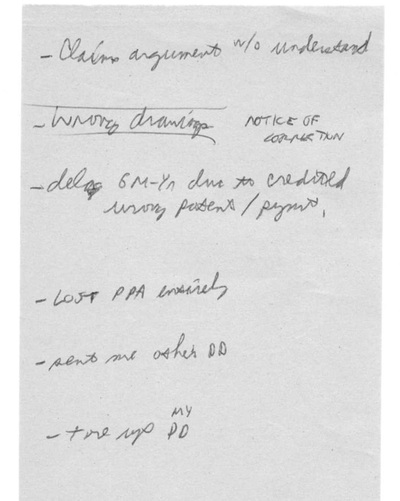 - Claims argument w/o understand
- Wrong drawings NOTICE OF
CORRECTION
- delay 6M-Yr due to credited
wrong patent / pymt.
- LOST PPA entirely
- sent me other DD
MY
- tore up DD